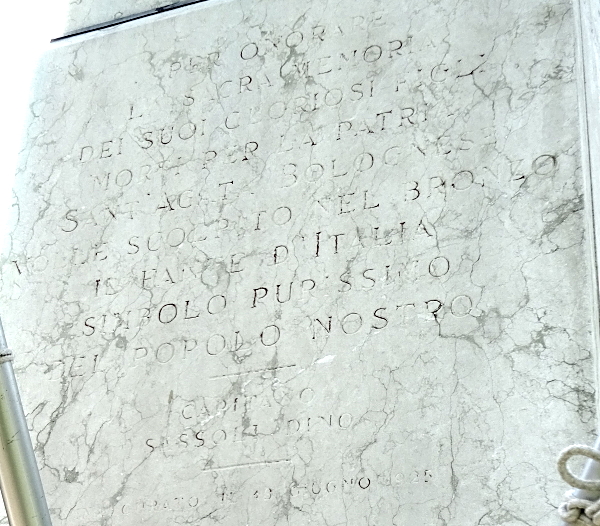 PER ONORARE
LA SACRA MEMORIA
DEI SUOI GLORIOSI FIGLI
MORTI PER LA PATRIA
SANT'AGATA BOLOGNESE
VOLLE SCOLPITO NEL BRONZO
IL FANTE D'ITALIA
SIMBOLO PURISSIMO
DEL POPOLO NOSTRO
CAPITANO
SASSOLI DINO
GIUGNO